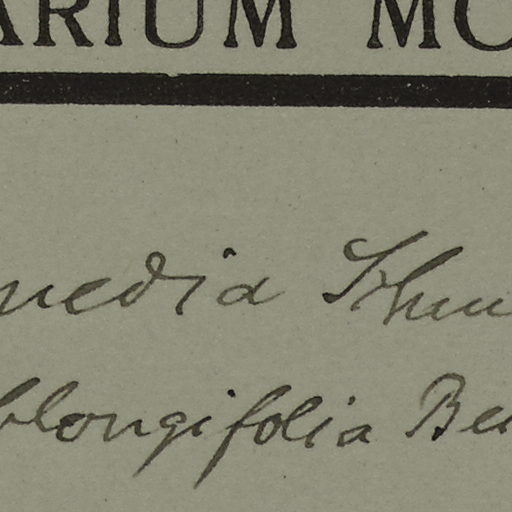 ARIUM MO
media Thun
blongifolia Be